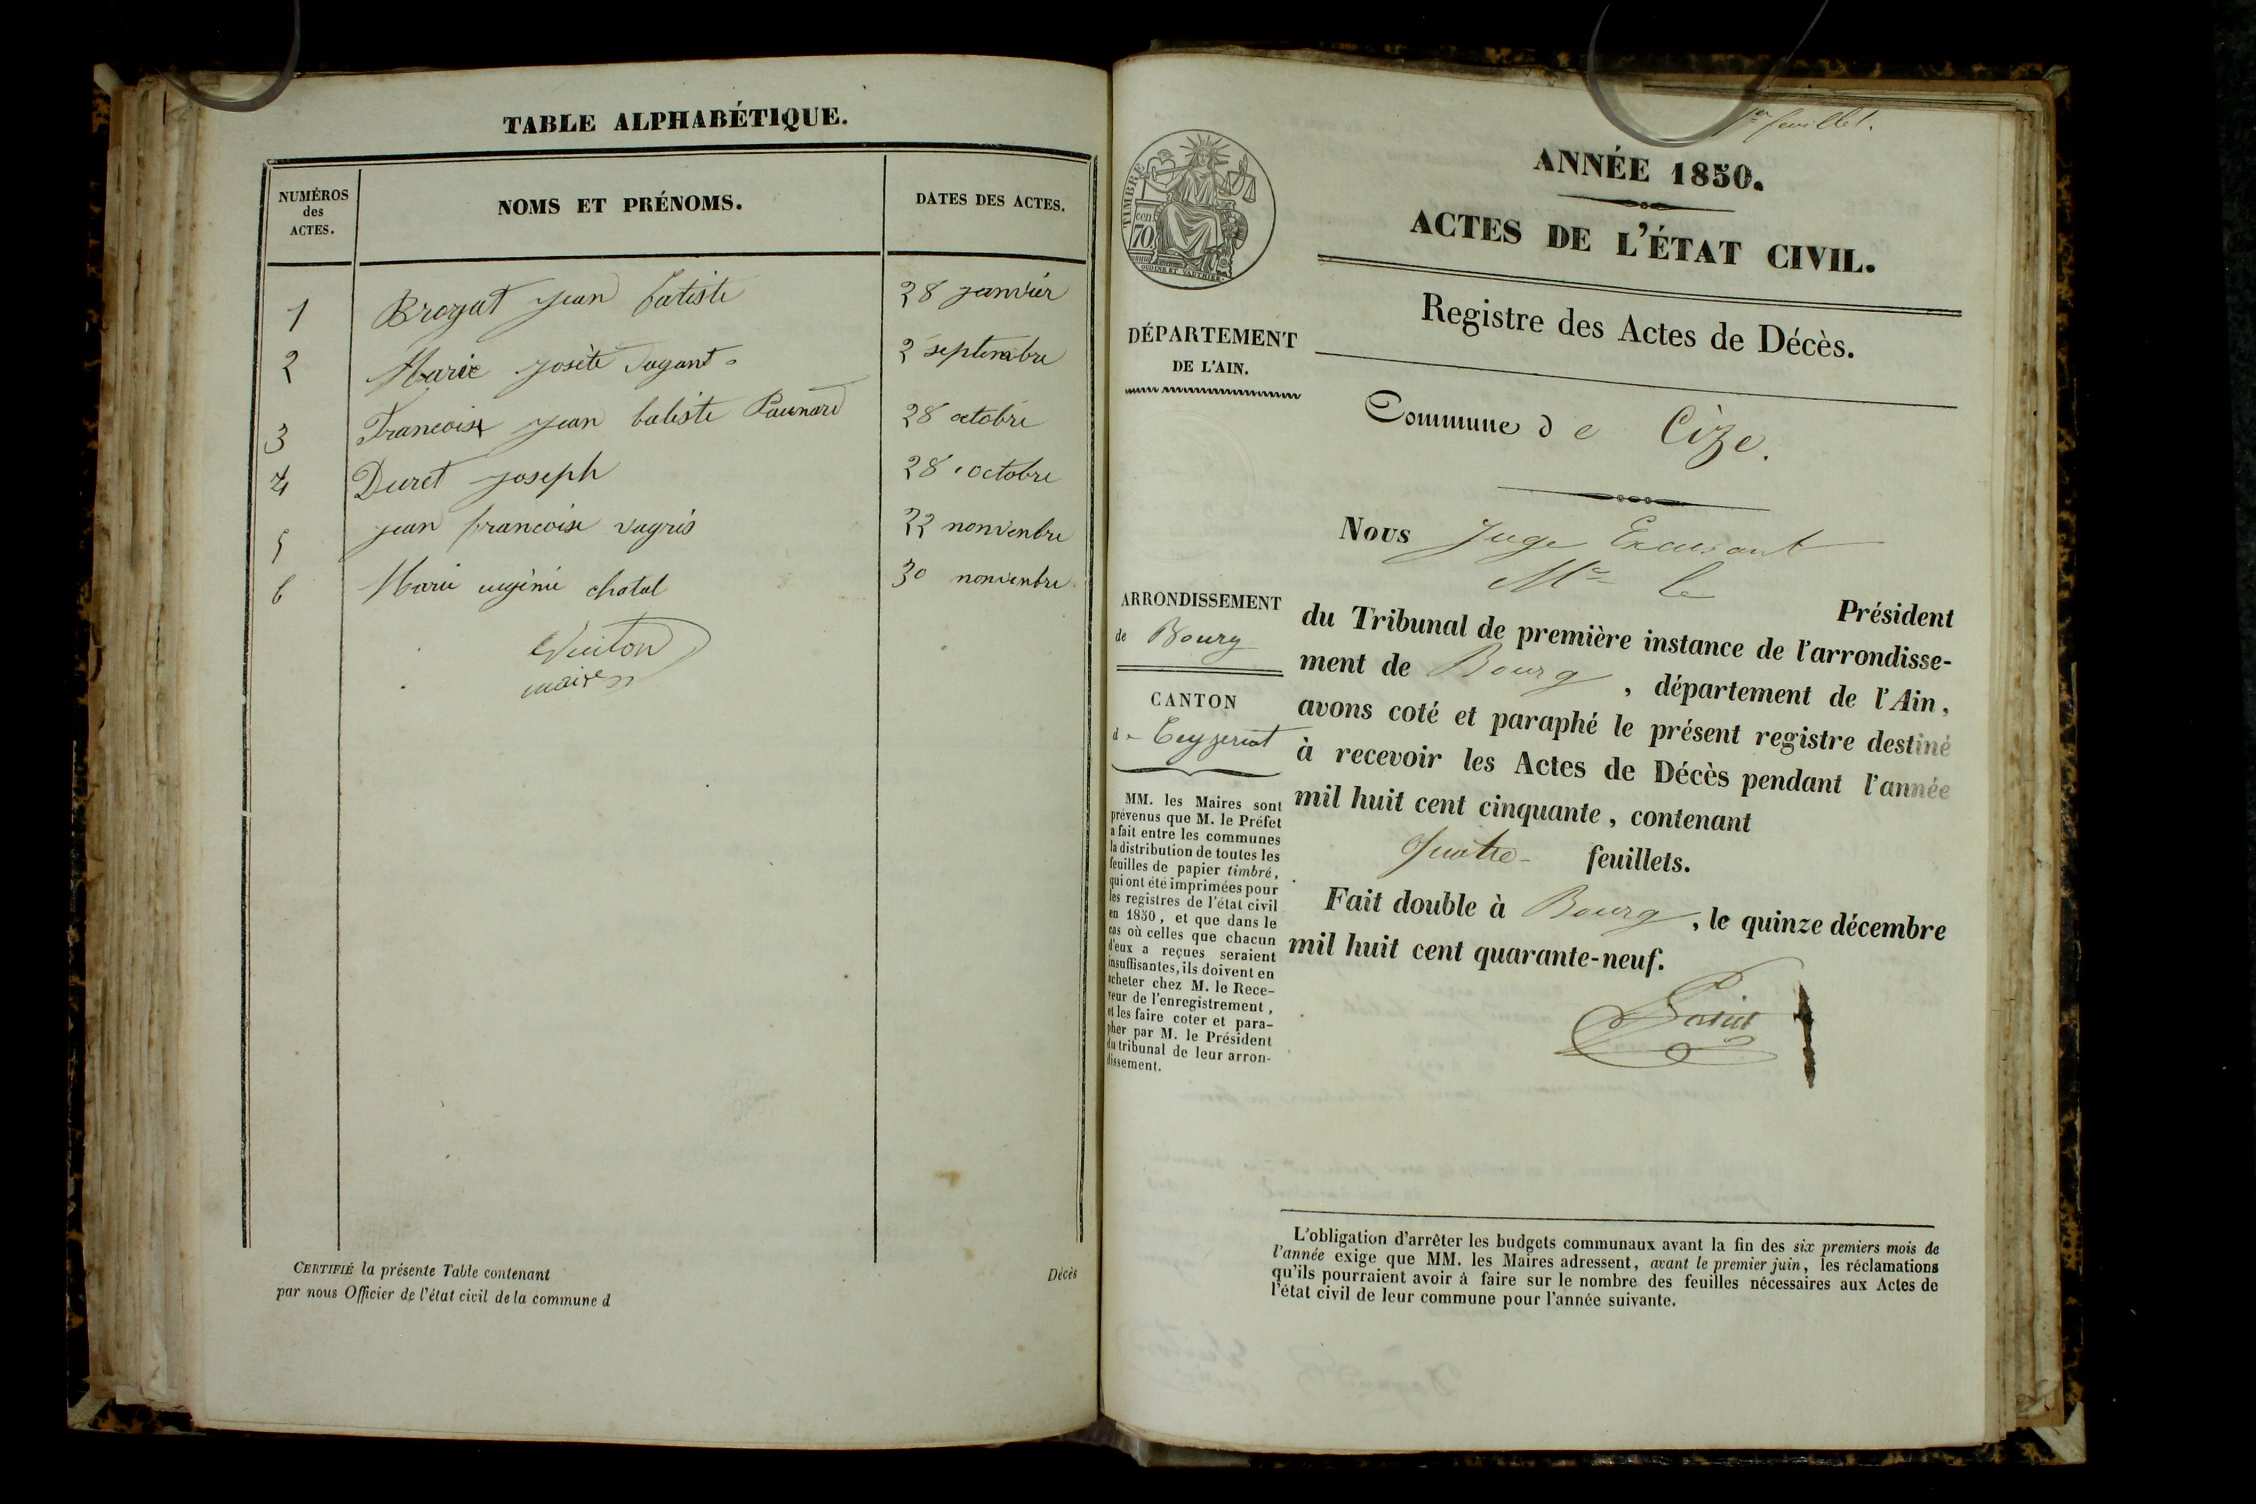 TABLE ALPHABÉTIQUE.
NUMÉROS
des
ACTES.
NOMS ET PRÉNOMS.
DATES DES ACTES.
1 Brogat jean batiste 28 janvier
2 Marie josète 2 septembre
3 Francoise jean batiste 28 octobre
4 Duret joseph 28 octobre
5 jean francoise 22 nonvenbre
6 Marie eugénie chatal 30 nonvenbre
maire
CERTIFIÉ la présente Table contenant Décès
par nous Officier de l'état civil de la commune d
1er feuillet.
ANNÉE 1850.
ACTES DE L'ÉTAT CIVIL.
Registre des Actes de Décès.
TIMBRE
cen
70
DÉPARTEMENT
DE L'AIN.
Commune de Cize.
Nous Juge Excusant
Mr le Président
du Tribunal de première instance de l'arrondisse-
ment de Bourg, département de l'Ain,
avons coté et paraphé le présent registre destiné
à recevoir les Actes de Décès pendant l'année
mil huit cent cinquante, contenant
quatre feuillets.
Fait double à Bourg, le quinze décembre
mil huit cent quarante-neuf.
ARRONDISSEMENT
de Bourg
CANTON
de Ceyzeriat
MM. les Maires sont
prévenus que M. le Préfet
a fait entre les communes
la distribution de toutes les
feuilles de papier timbré,
qui ont été imprimées pour
les registres de l'état civil
en 1850, et que dans le
cas où celles que chacun
d'eux a reçues seraient
insuffisantes, ils doivent en
acheter chez M. le Rece-
veur de l'enregistrement,
et les faire coter et para-
pher par M. le Président
du tribunal de leur arron-
dissement.
L'obligation d'arrêter les budgets communaux avant la fin des six premiers mois de
l'année exige que MM. les Maires adressent, avant le premier juin, les réclamations
qu'ils pourraient avoir à faire sur le nombre des feuilles nécessaires aux Actes de
l'état civil de leur commune pour l'année suivante.